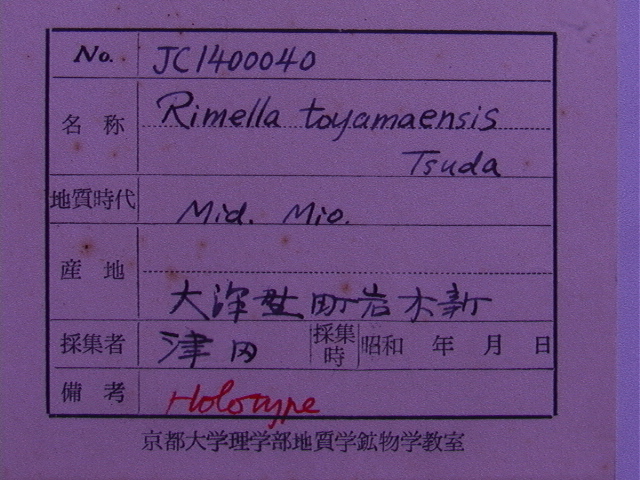 No. JC1400040
名称 Rimella toyamaensis
Tsuda
地質時代 Mid. Mio.
産地
大沢野町岩木新
採集者 津田 採集時 昭和 年 月 日
備考 Holotype
京都大学理学部地質学鉱物学教室